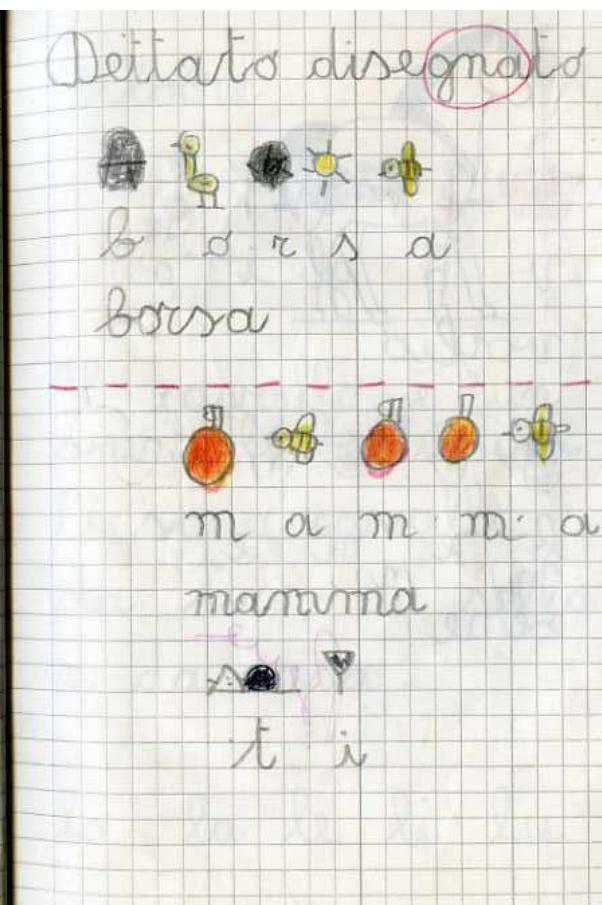 Dettato disegnato
b o r s a
borsa
m a m m a
mamma
t i